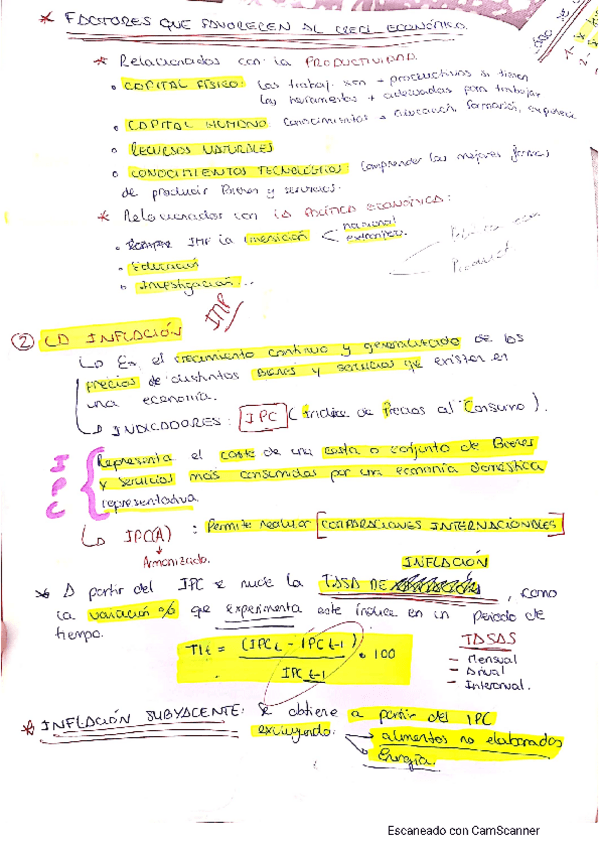 * FACTORES QUE FAVORECEN AL CREC. ECONÓMICO.
* Relacionados con la PRODUCTIVIDAD.
• CAPITAL FÍSICO: Los trabaj. son + productivos si tienen
las herramientas + adecuadas para trabajar
• CAPITAL HUMANO: conocimientos = educación, formación, experiencia
• RECURSOS NATURALES
• CONOCIMIENTOS TECNOLÓGICOS: Comprender las mejores formas
de producir Bienes y servicios.
* Relacionados con la POLÍTICA ECONÓMICA:
• IMP la inversión < nacional
extranjera.
Product.
• Educación
• Investigación...
IMP
② LA INFLACIÓN
↳ Es el crecimiento continuo y generalizado de los
precios de distintos Bienes y servicios que existen en
una economía.
↳ INDICADORES: IPC (Índice de Precios al Consumo).
IPC { Representa el coste de una cesta o conjunto de Bienes
y servicios más consumidos por una economía doméstica
representativa.
↳ IPC(A) : Permite realizar [COMPARACIONES INTERNACIONALES]
Armonizado.
INFLACIÓN
* A partir del IPC se mide la TASA DE , como
la variación % que experimenta este índice en un periodo de
tiempo.
TIt = (IPCt - IPCt-1) / IPCt-1 • 100
TASAS
- Mensual
- Anual
- Interanual.
* INFLACIÓN SUBYACENTE: Se obtiene a partir del IPC
excluyendo: → alimentos no elaborados
→ Energía.
Escaneado con CamScanner